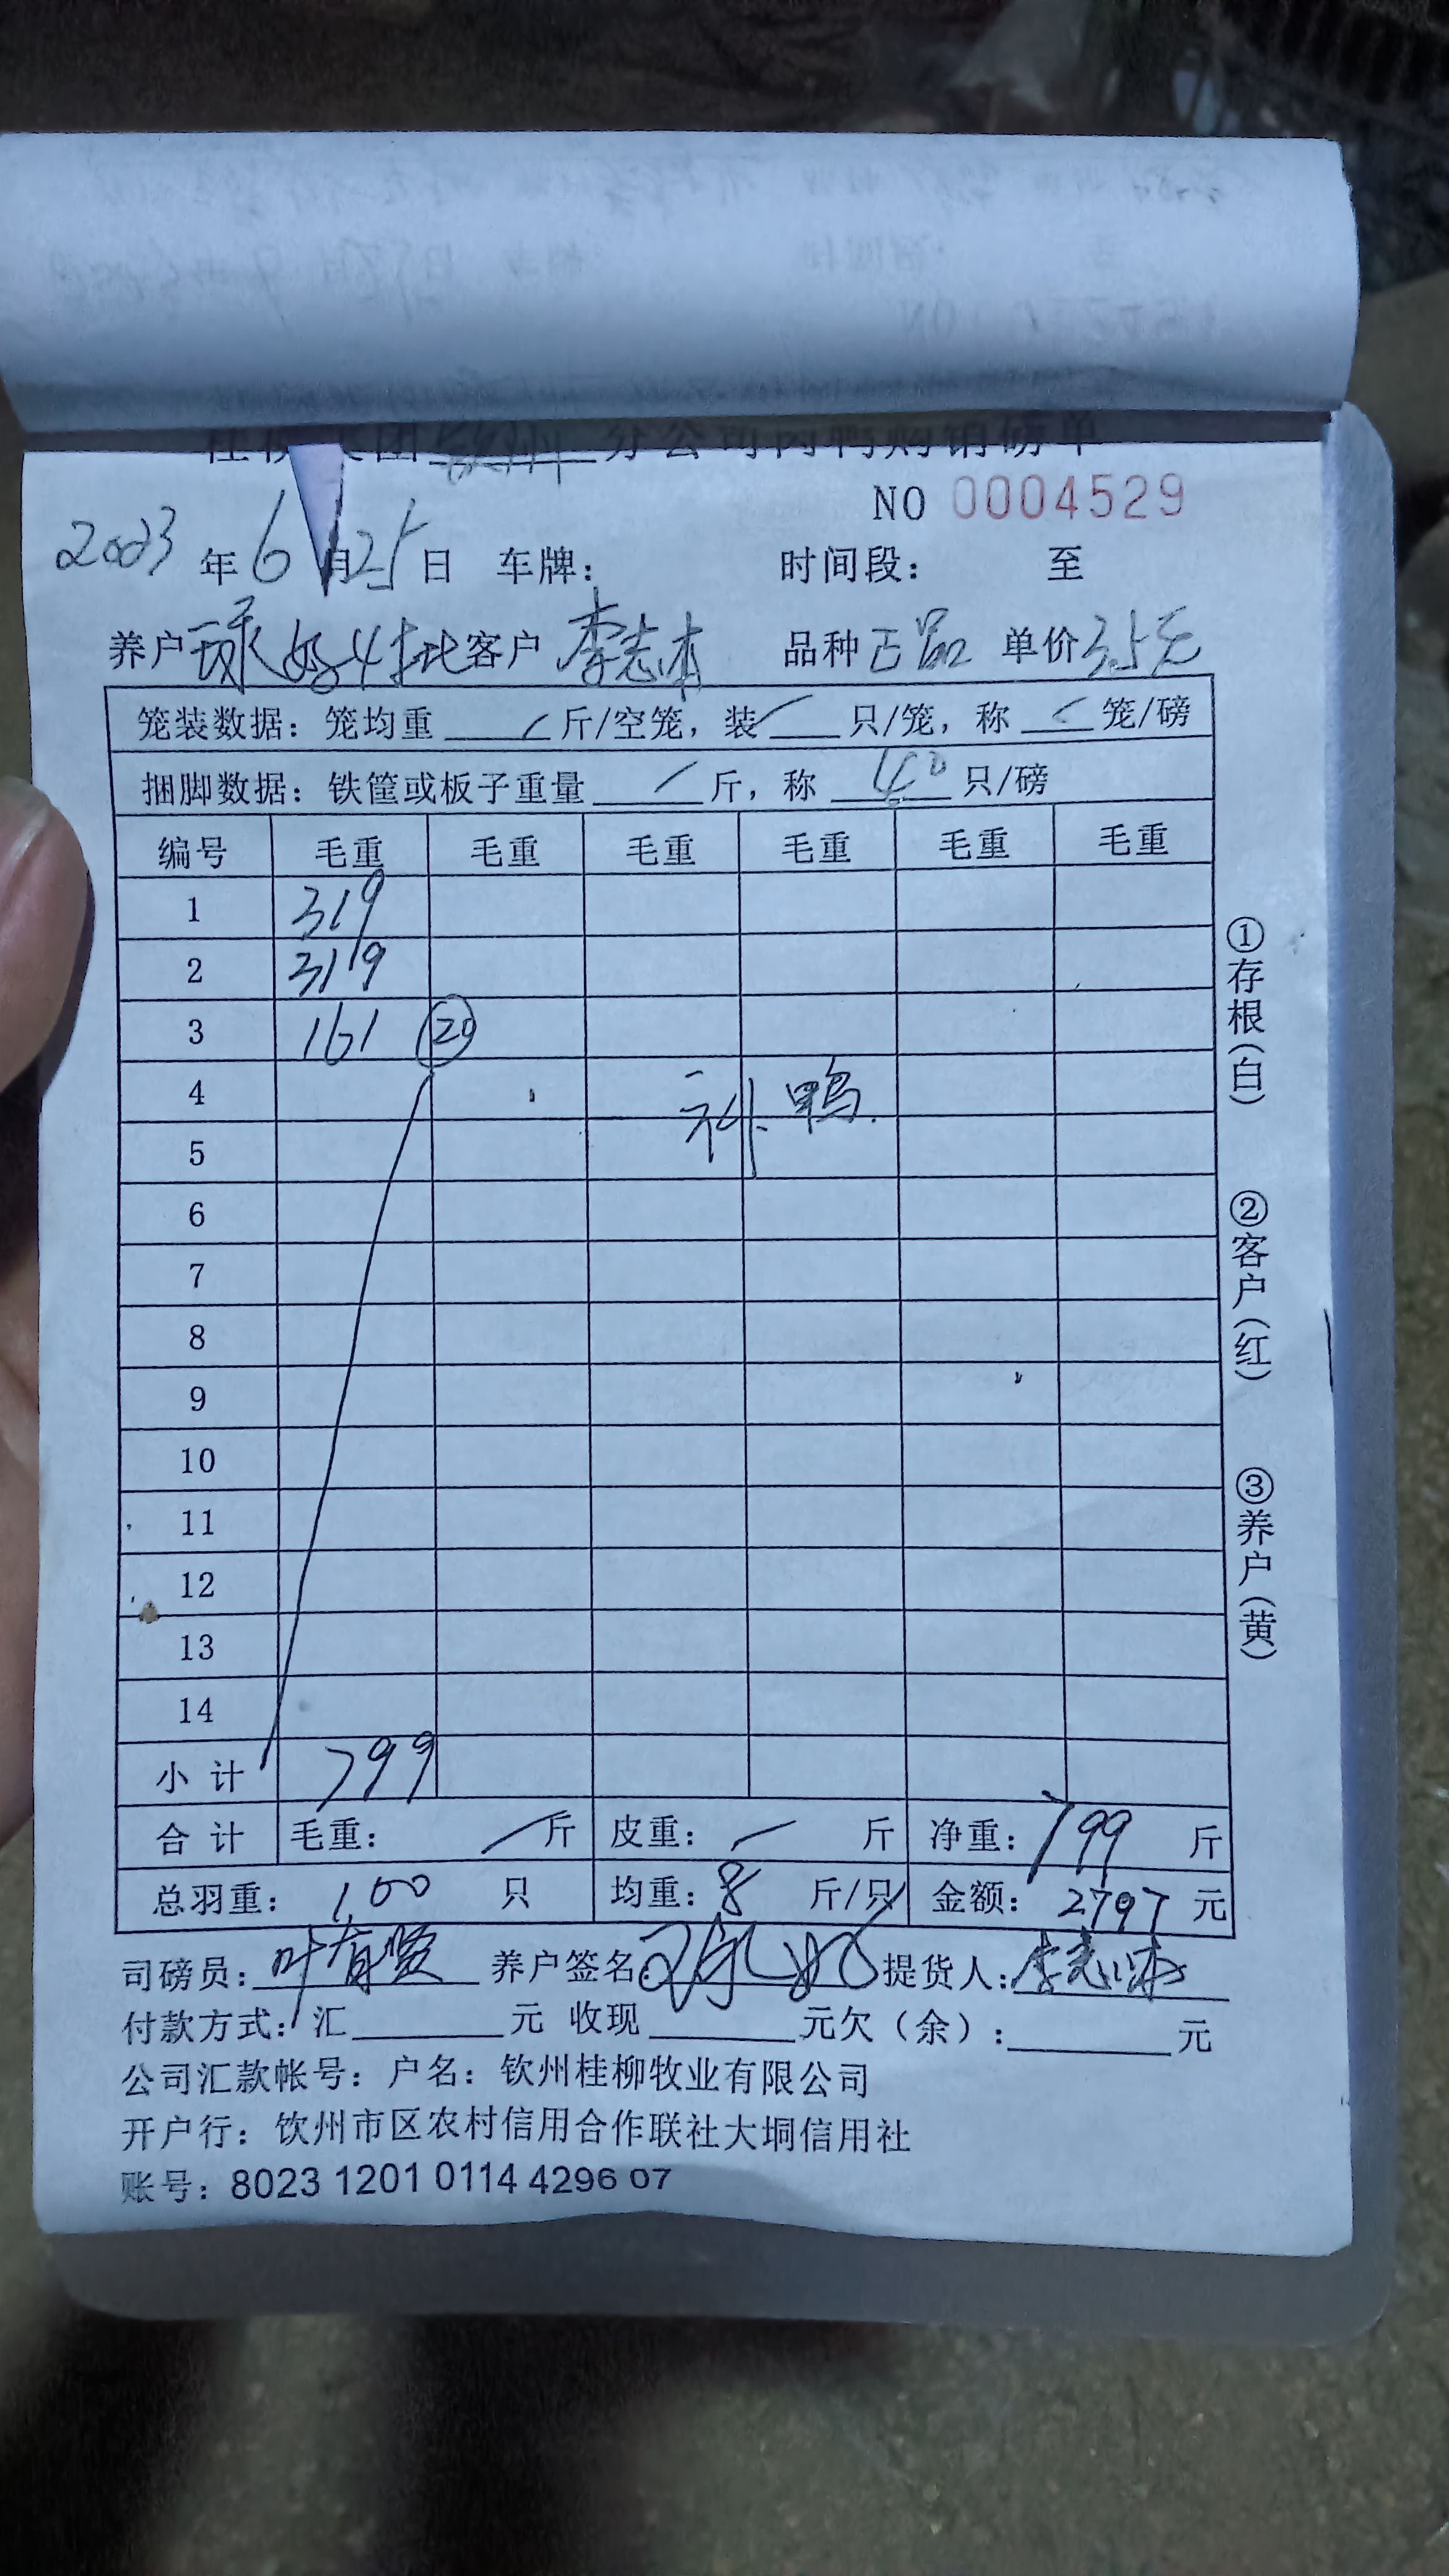 桂柳集团钦州分公司肉鸭购销磅单
NO 0004529
2023年6月25日 车牌: 时间段: 至
养户 球好4批 客户 李志本 品种 正品 单价 3.5元
笼装数据: 笼均重 斤/空笼, 装 只/笼, 称 笼/磅
捆脚数据: 铁筐或板子重量 斤, 称 40 只/磅
编号 毛重 毛重 毛重 毛重 毛重 毛重
1 319
2 319
3 161 20
4 补鸭
5
6
7
8
9
10
11
12
13
14
小计 799
合计 毛重: 斤 皮重: 斤 净重: 799 斤
总羽重: 100 只 均重: 8 斤/只 金额: 2797 元
司磅员: 叶有贤 养户签名: 提货人: 李志本
付款方式: 汇 元 收现 元欠(余): 元
公司汇款帐号: 户名: 钦州桂柳牧业有限公司
开户行: 钦州市区农村信用合作联社大垌信用社
账号: 8023 1201 0114 4296 07
①存根(白)
②客户(红)
③养户(黄)